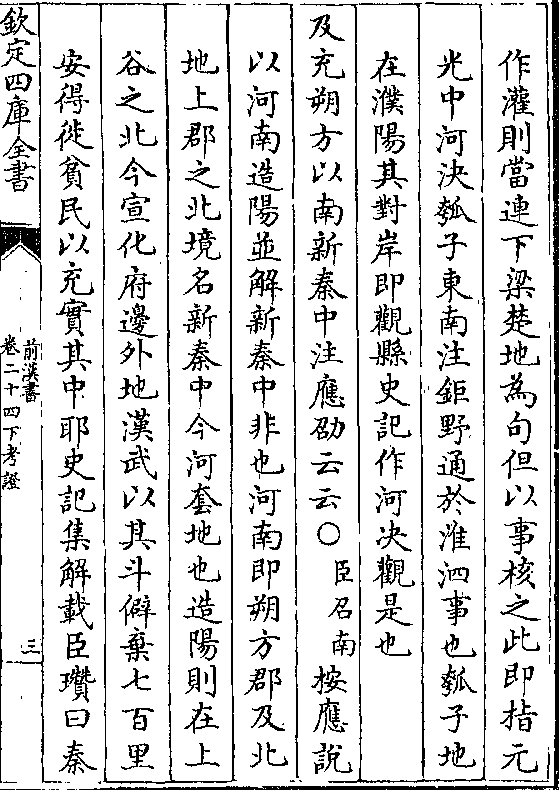 作灌則當連下梁楚地為句但以事核之此即指元
光中河決瓠子東南注鉅野通於淮泗事也瓠子地
在濮陽其對岸即觀縣史記作河決觀是也
及充朔方以南新秦中注應劭云云〇臣召南按應說
以河南造陽並解新秦中非也河南即朔方郡及北
地上郡之北境名新秦中今河套地也造陽則在上
谷之北今宣化府邊外地漢武以其斗僻棄七百里
安得徙貧民以充實其中耶史記集解載臣瓚曰秦
欽定四庫全書
前漢書
卷二十四下考證
三